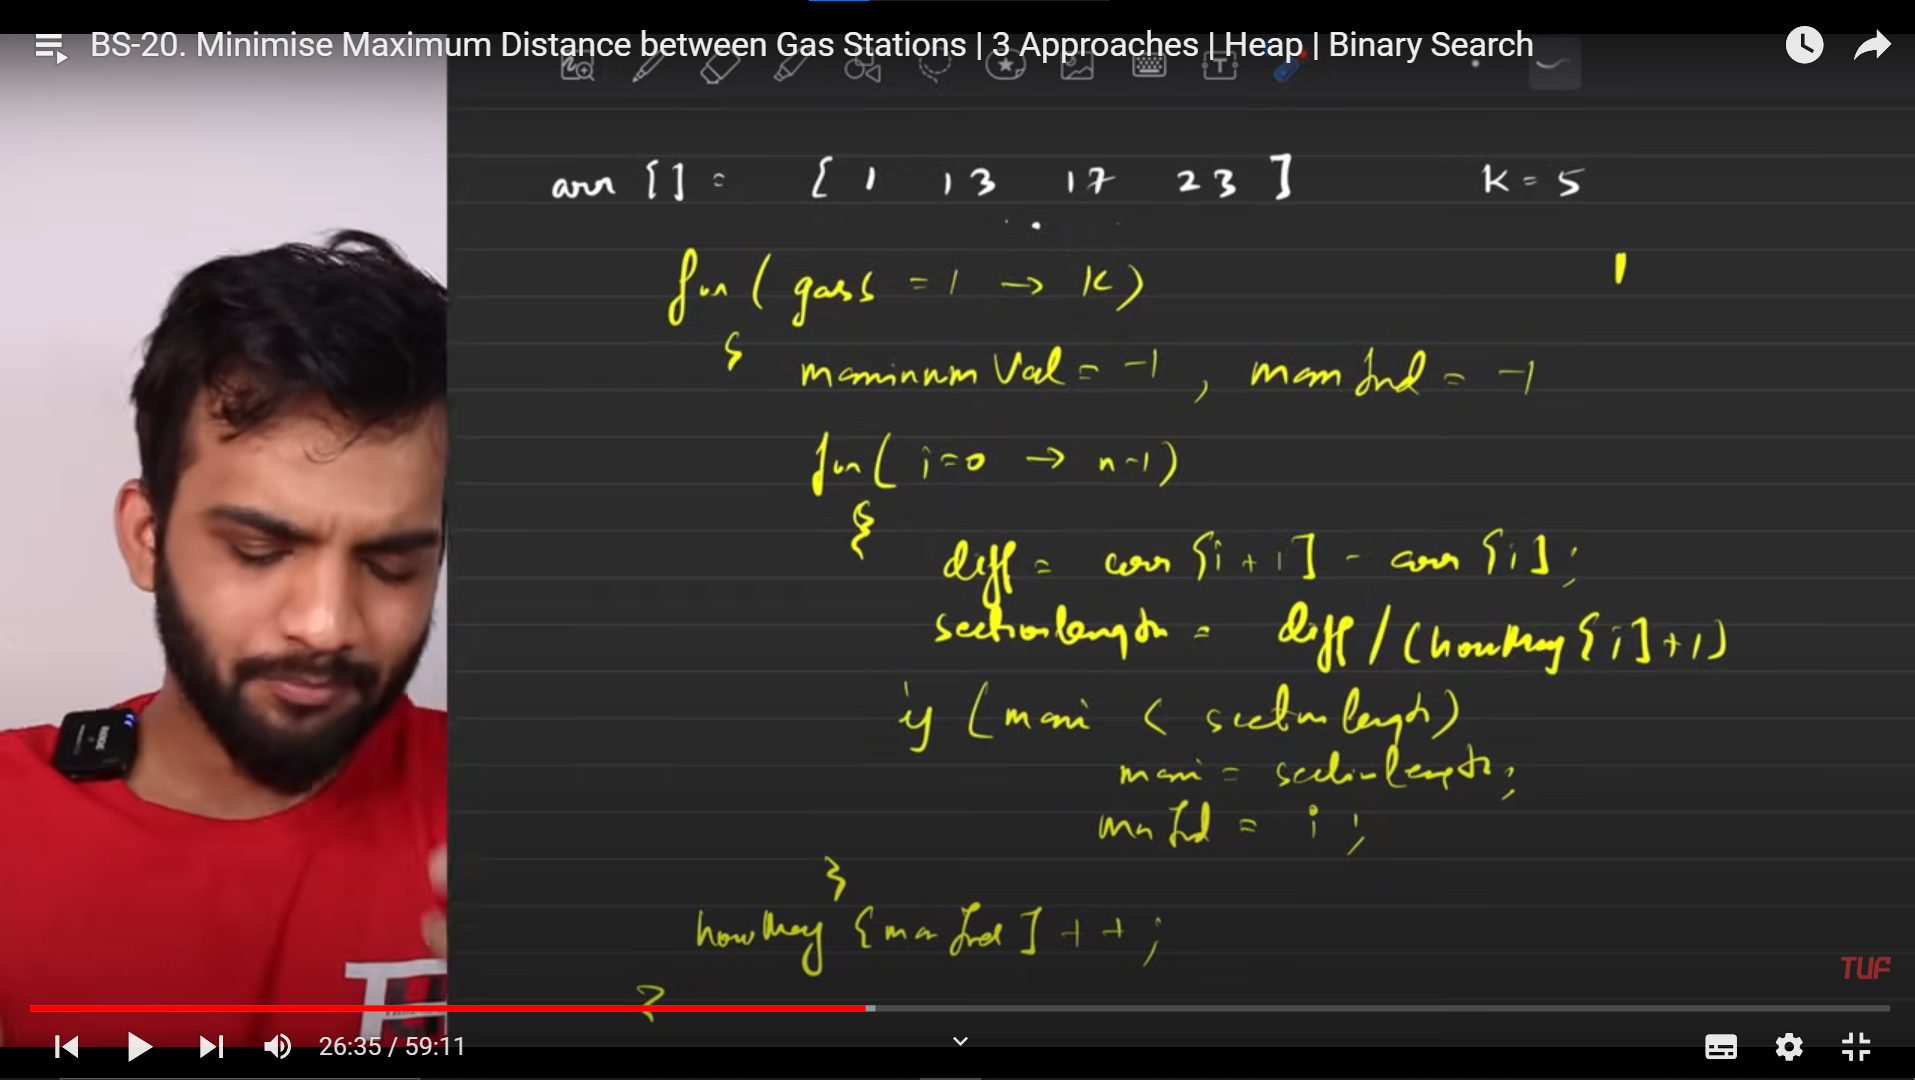 BS-20. Minimise Maximum Distance between Gas Stations | 3 Approaches | Heap | Binary Search
arr [] = [ 1 13 17 23 ] K = 5
for ( gas = 1 → K )
{
maximum Val = -1 , max Ind = -1
for ( i = 0 → n-1 )
{
diff = arr [i + 1] - arr [i] ;
section length = diff / (howMany [i] + 1)
if ( maxi < section length )
maxi = section length ;
max Ind = i ;
}
howMany [max Ind] + + ;
}
TUF
26:35 / 59:11